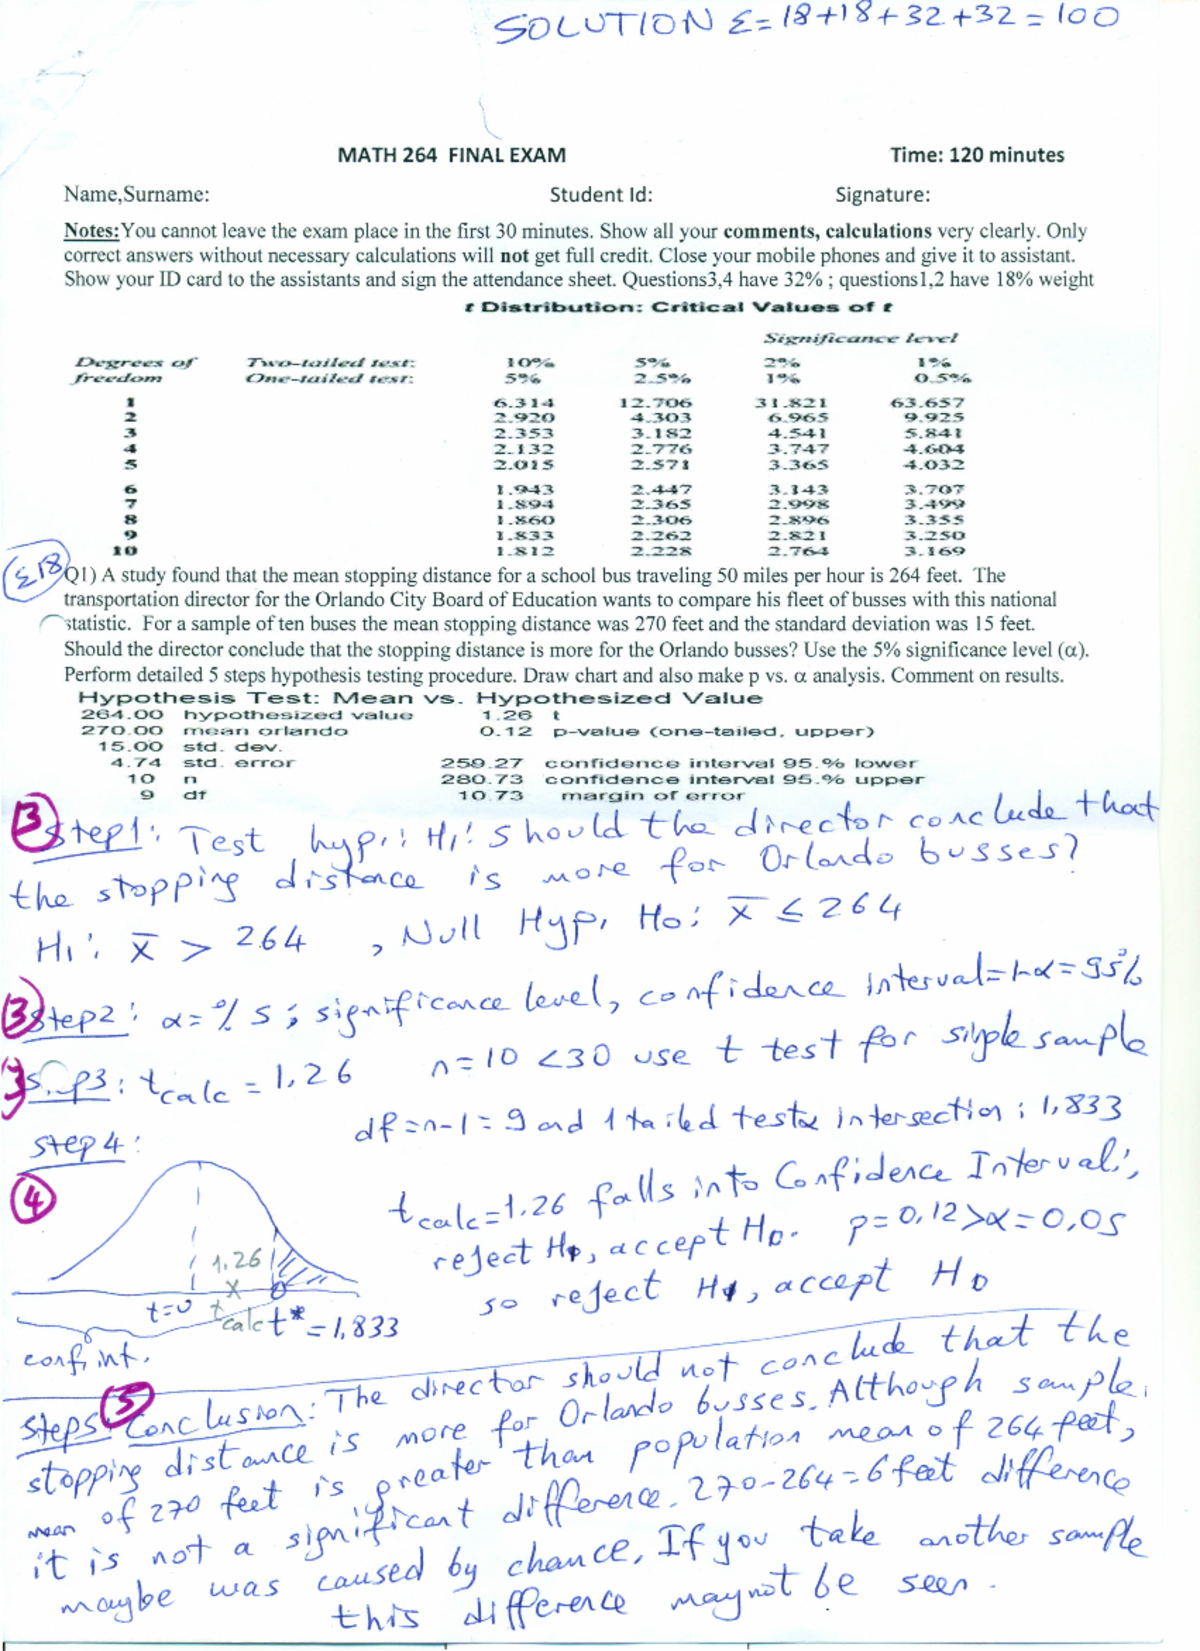 SOLUTION Σ= 18+18+32+32=100
MATH 264 FINAL EXAM Time: 120 minutes
Name,Surname: Student Id: Signature:
Notes:You cannot leave the exam place in the first 30 minutes. Show all your comments, calculations very clearly. Only
correct answers without necessary calculations will not get full credit. Close your mobile phones and give it to assistant.
Show your ID card to the assistants and sign the attendance sheet. Questions3,4 have 32% ; questions1,2 have 18% weight
t Distribution: Critical Values of t
Significance level
Degrees of Two-tailed test: 10% 5% 2% 1%
freedom One-tailed test: 5% 2.5% 1% 0.5%
1 6.314 12.706 31.821 63.657
2 2.920 4.303 6.965 9.925
3 2.353 3.182 4.541 5.841
4 2.132 2.776 3.747 4.604
5 2.015 2.571 3.365 4.032
6 1.943 2.447 3.143 3.707
7 1.894 2.365 2.998 3.499
8 1.860 2.306 2.896 3.355
9 1.833 2.262 2.821 3.250
10 1.812 2.228 2.764 3.169
Σ18
Q1) A study found that the mean stopping distance for a school bus traveling 50 miles per hour is 264 feet. The
transportation director for the Orlando City Board of Education wants to compare his fleet of busses with this national
statistic. For a sample of ten buses the mean stopping distance was 270 feet and the standard deviation was 15 feet.
Should the director conclude that the stopping distance is more for the Orlando busses? Use the 5% significance level (α).
Perform detailed 5 steps hypothesis testing procedure. Draw chart and also make p vs. α analysis. Comment on results.
Hypothesis Test: Mean vs. Hypothesized Value
264.00 hypothesized value 1.26 t
270.00 mean orlando 0.12 p-value (one-tailed, upper)
15.00 std. dev.
4.74 std. error 259.27 confidence interval 95.% lower
10 n 280.73 confidence interval 95.% upper
9 df 10.73 margin of error
3 Step1: Test hyp.: H1: Should the director conclude that
the stopping distance is more for Orlando busses?
H1: x̄ > 264 , Null Hyp. Ho: x̄ ≤ 264
3 Step2: α=%5; significance level, confidence interval=1-α=95%
3 S p3: tcalc = 1,26 n=10 <30 use t test for simple sample
df=n-1=9 and 1 tailed test intersection: 1,833
step 4:
4 tcalc=1.26 falls into Confidence Interval;
reject H1, accept Ho. p=0,12>α=0,05
so reject H1, accept Ho
1,26
x
t=0 tcalc t*=1,833
conf. int.
Step5 5 Conclusion: The director should not conclude that the
stopping distance is more for Orlando busses. Although sample
mean of 270 feet is greater than population mean of 264 feet,
it is not a significant difference. 270-264=6 feet difference
maybe was caused by chance. If you take another sample
this difference may not be seen.